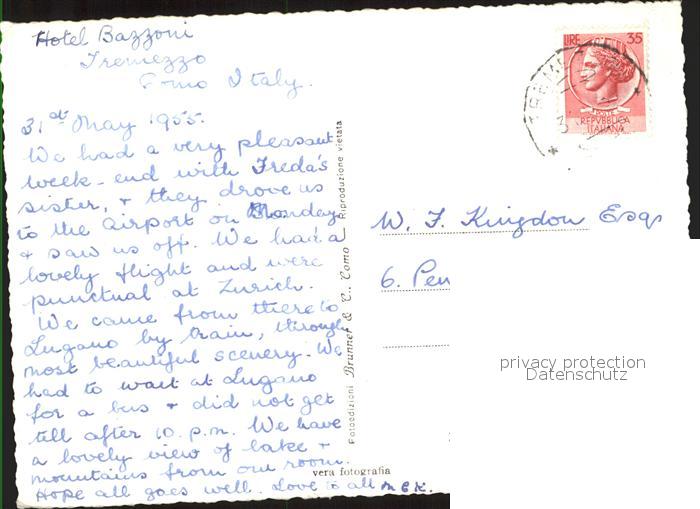 Hotel Bazzoni
Tremezzo
Como Italy.
31st May 1955.
We had a very pleasant
week-end with Freda's
sister, + they drove us
to the airport on Monday
+ saw us off. We had a
lovely flight and were
punctual at Zurich.
We came from there to
Lugano by train, through
most beautiful scenery. We
had to wait at Lugano
for a bus + did not get
till after 10.p.m. We have
a lovely view of lake +
mountains from our room.
Hope all goes well. Love to all MEK.
vera fotografia
Fotoedizioni Brunner & C., Como — Riproduzione vietata
LIRE 35
POSTE
REPVBBLICA
ITALIANA
W. F. Kingdon Esq
6. Pen
privacy protection
Datenschutz